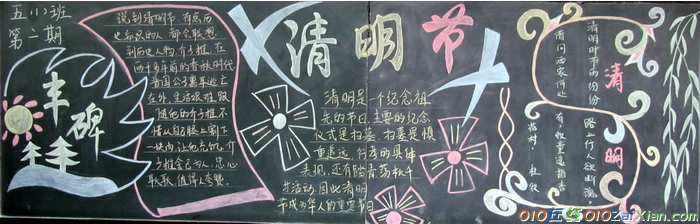 五(1)班
第二期
丰碑
说到清明节,有点历
史知识的人,都会联想
到历史人物介子推。在
两千多年前的春秋时代
晋国公子重耳逃亡
在外,生活艰难,跟
随他的介子推不
惜从自己腿上割下
一块肉让他充饥。介
子推舍己为人,忠心
耿耿,值得人夸赞。
清明节
清明是一个纪念祖
先的节日,主要的纪念
仪式是扫墓,扫墓是慎
重追远、行孝的具体
表现,还有踏青荡秋千
等活动,因此清明
节成为华人的重要节日
清明
清明时节雨纷纷
路上行人欲断魂
借问酒家何处
有牧童遥指杏
花村
杜牧
010在线 010zaixian.com